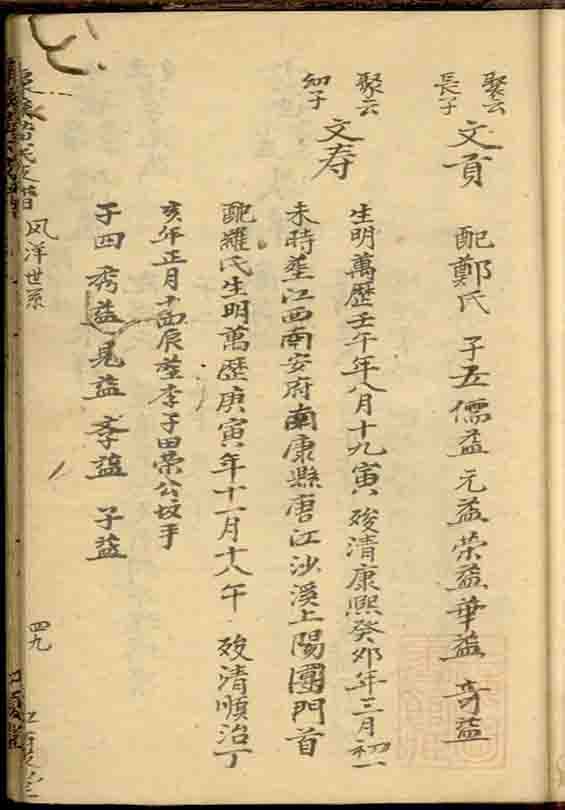 聚云
長子
文貢
配鄭氏 子五儒益元益荣益華益 奇益
聚云
幼子
文寿
生明萬歷壬午年八月十九寅 殁清康熙癸卯年三月初一
未時塟江西南安府南康縣唐江沙溪上陽團門首
配羅氏生明萬歷庚寅年十一月十八午 殁清順治丁
亥年正月十四辰塟李子田荣公坟手
子四 秀益 見益 季益 子益
风洋世系
四九